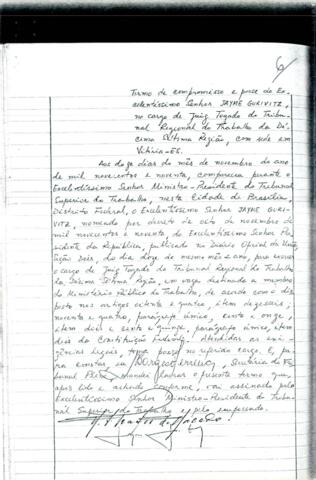 6
Termo de compromisso e posse do Ex-
celentíssimo Senhor JAYME GURIVITZ,
no cargo de Juiz Togado do Tribu-
nal Regional do Trabalho da Dé-
cima Sétima Região, com sede em
Vitória-ES.
Aos doze dias do mês de novembro do ano
de mil novecentos e noventa, compareceu perante o
Excelentíssimo Senhor Ministro-Presidente do Tribunal
Superior do Trabalho, nesta Cidade de Brasília,
Distrito Federal, o Excelentíssimo Senhor JAYME GURI-
VITZ, nomeado por decreto de oito de novembro de
mil novecentos e noventa, do Excelentíssimo Senhor Pre-
sidente da República, publicado no Diário Oficial da União,
Seção Dois, do dia doze do mesmo mês e ano, para exercer
o cargo de Juiz Togado do Tribunal Regional do Trabalho
da Décima Sétima Região, em vaga destinada a membro
do Ministério Público do Trabalho, de acordo com o dis-
posto nos artigos oitenta e quatro, item dezesseis;
noventa e quatro, parágrafo único, cento e onze,
item dois e cento e quinze, parágrafo único, item
dois da Constituição Federal. Atendidas as exi-
gências legais, toma posse no referido cargo. E, pa-
ra constar eu, Secretária do Tri-
bunal Pleno, mandei lavrar o presente termo que,
após lido e achado conforme, vai assinado pelo
Excelentíssimo Senhor Ministro-Presidente do Tribu-
nal Superior do Trabalho e pelo empossado.